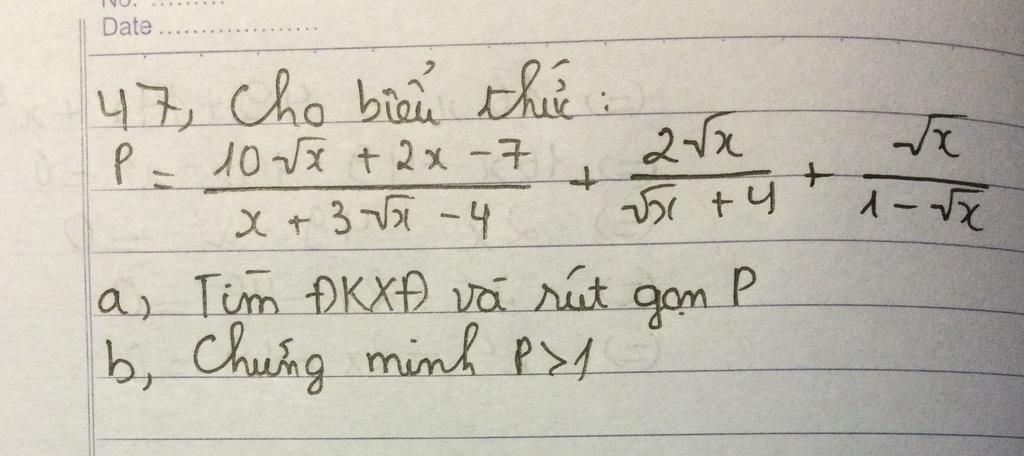 No. ..........
Date ....................
47, Cho biểu thức :
P = \frac{10\sqrt{x} + 2x - 7}{x + 3\sqrt{x} - 4} + \frac{2\sqrt{x}}{\sqrt{x} + 4} + \frac{\sqrt{x}}{1 - \sqrt{x}}
a, Tìm ĐKXĐ và rút gọn P
b, Chứng minh P>1